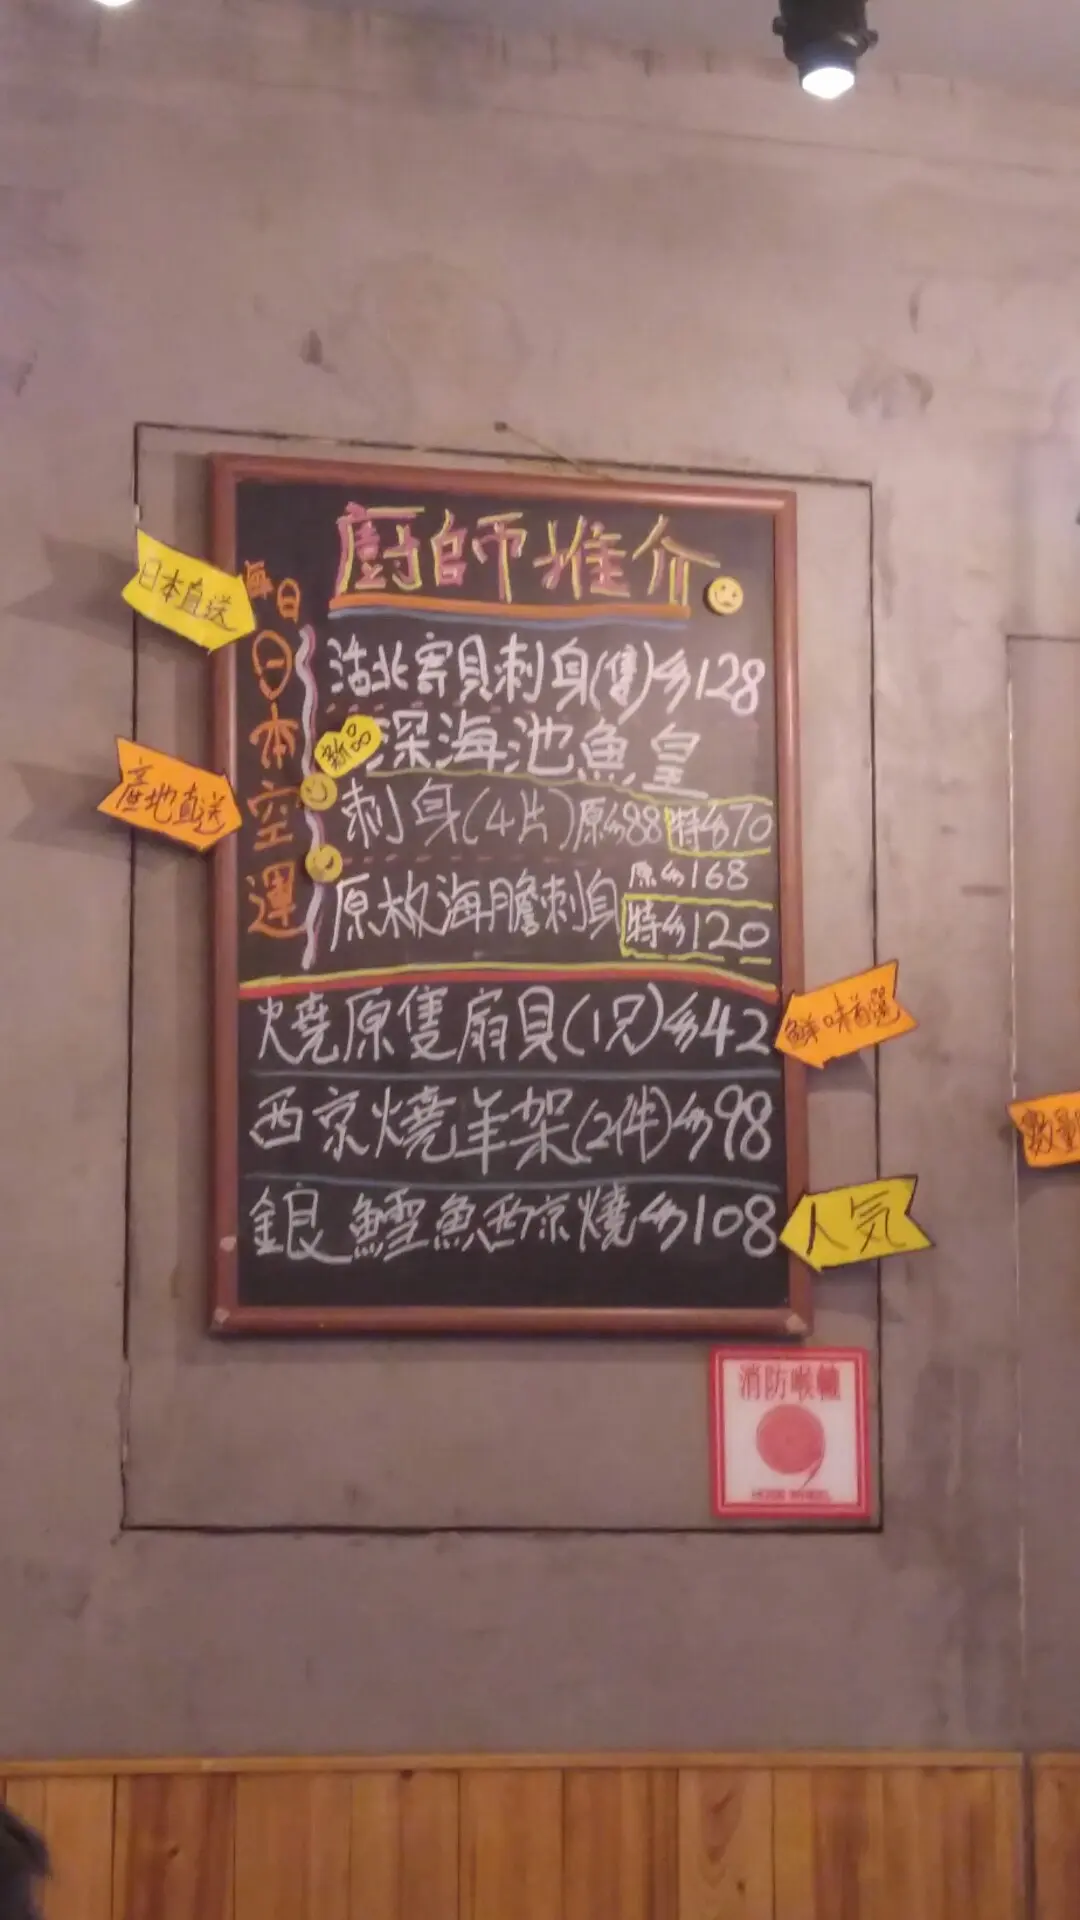 廚師推介
日本直送
每日
日本空運
活北寄貝刺身(隻)$128
新品
深海池魚皇
刺身(4片)原$88 特$70
產地直送
原$168
原枚海膽刺身
特$120
燒原隻扇貝(1只)$42
鮮味首選
西京燒羊架(2件)$98
銀鱈魚西京燒$108
人気
數量
消防喉轆
HOSE REEL